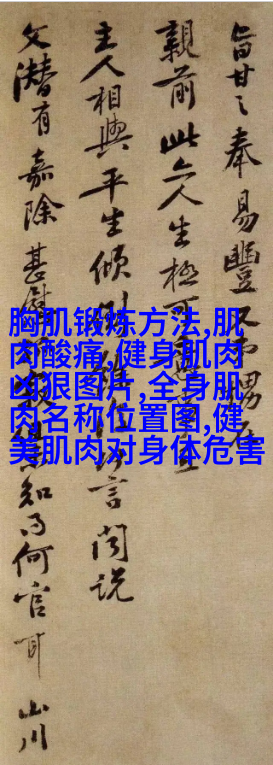 旨甘〻奉易豐
親前此亦人生極可
主人相與平生傾倒言聞説
文潛有嘉除甚慰知為何官耳山川
胸肌锻炼方法,肌
肉酸痛,健身肌肉
凶狠图片,全身肌
肉名称位置图,健
美肌肉对身体危害